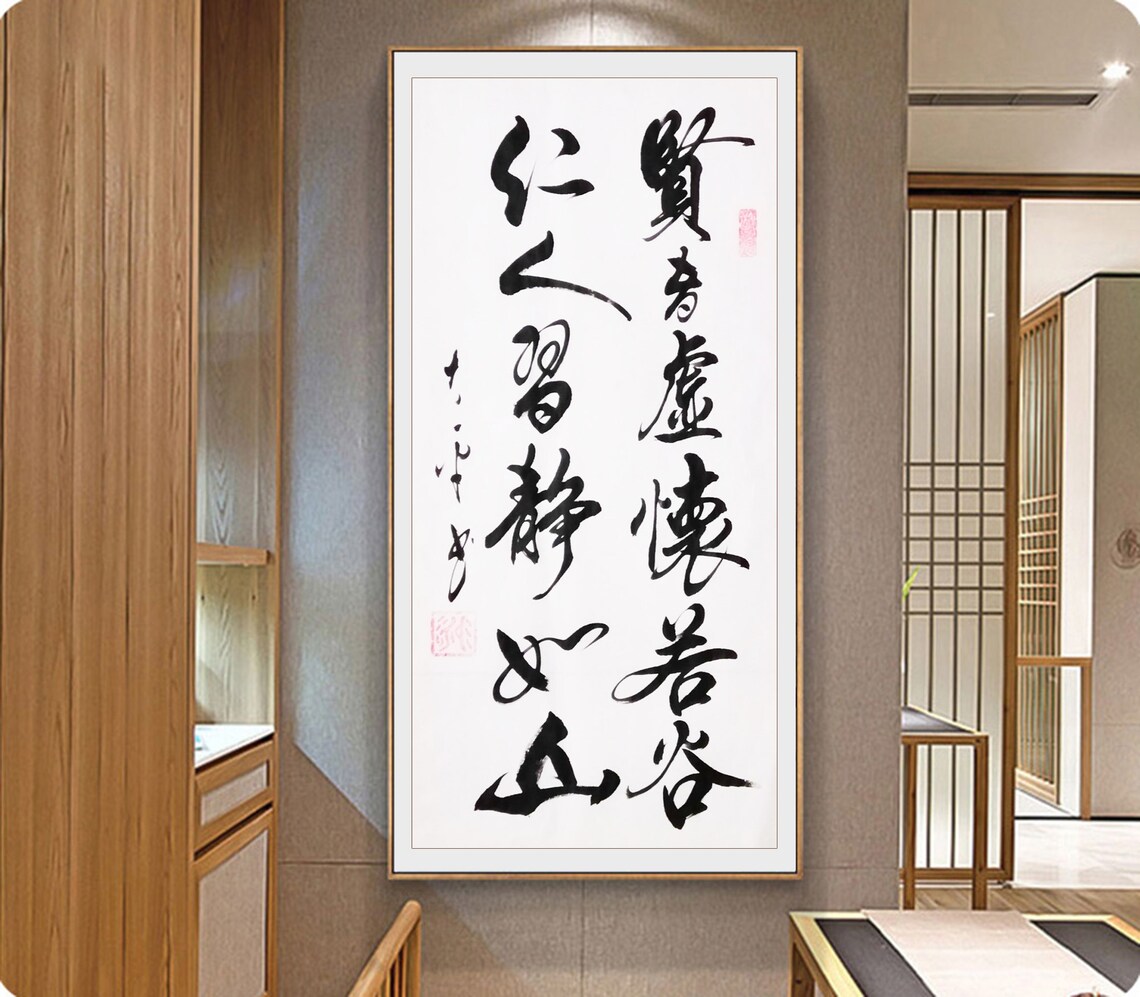 賢者虚懷若谷
仁人習靜如山